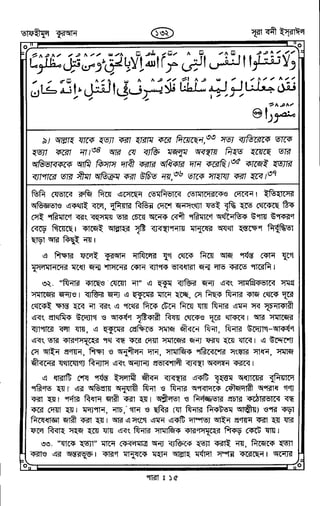 তাফহীমুল কুরআন
১৩২
সূরা বনী ইসরাঈল
وَلَا تَقْتُلُوا النَّفْسَ الَّتِي حَرَّمَ اللَّهُ إِلَّا بِالْحَقِّ ۗ وَمَن قُتِلَ مَظْلُومًا
فَقَدْ جَعَلْنَا لِوَلِيِّهِ سُلْطَانًا فَلَا يُسْرِف فِّي الْقَتْلِ ۖ إِنَّهُ كَانَ
مَنصُورًا
৯। আল্লাহ যাকে হত্যা করা হারাম করে দিয়েছেন,৩৩ সত্য ব্যতিরেকে তাকে
হত্যা করো না।৩৪ আর যে ব্যক্তি মজলুম অবস্থায় নিহত হয়েছে তার
অভিভাবককে আমি কিসাস দাবী করার অধিকার দান করেছি।৩৫ কাজেই হত্যার
ব্যাপারে তার সীমা অতিক্রম করা উচিত নয়,৩৬ তাকে সাহায্য করা হবে।৩৭
তিনি যেভাবে রিযিক দিয়ে এসেছেন তেমনিভাবে তোমাদেরকেও দেবেন। ইতিহাসের
অভিজ্ঞতাও একথাই বলে, দুনিয়ার বিভিন্ন দেশে জনসংখ্যা যতই বৃদ্ধি হতে থেকেছে ঠিক
সেই পরিমাণে বরং বহু সময় তার চেয়ে অনেক বেশী পরিমাণে অর্থনৈতিক উপায় উপকরণ
বেড়ে গিয়েছে। কাজেই আল্লাহর সৃষ্টি ব্যবস্থাপনায় মানুষের অযথা হস্তক্ষেপ নির্বুদ্ধিতা
ছাড়া আর কিছুই নয়।
এ শিক্ষার ফলেই কুরআন নাযিলের যুগ থেকে নিয়ে আজ পর্যন্ত কোন যুগে
মুসলমানদের মধ্যে জন্ম শাসনের কোন ব্যাপক ভাবধারা জন্ম লাভ করতে পারেনি।
৩২. "যিনার কাছেও যেয়ো না" এ হুকুম ব্যক্তির জন্য এবং সামগ্রিকভাবে সমগ্র
সমাজের জন্যও। ব্যক্তির জন্য এ হুকুমের মানে হচ্ছে, সে নিছক যিনার কাজ থেকে দূরে
থেকেই ক্ষান্ত হবে না বরং এ পথের দিকে টেনে নিয়ে যায় যিনার এমন সব সূচনাকারী
এবং প্রাথমিক উদ্যোগ ও আকর্ষণ সৃষ্টিকারী বিষয় থেকেও দূরে থাকবে। আর সমাজের
ব্যাপারে বলা যায়, এ হুকুমের প্রেক্ষিতে সমাজ জীবনে যিনা, যিনার উদ্যোগ-আকর্ষণ
এবং তার কারণসমূহের পথ বন্ধ করে দেয়া সমাজের জন্য ফরয হয়ে যাবে। এ উদ্দেশ্যে
সে আইন প্রণয়ন, শিক্ষা ও অনুশীলন দান, সামাজিক পরিবেশের সংস্কার সাধন, সমাজ
জীবনের যথাযোগ্য বিন্যাস এবং অন্যান্য প্রভাবশালী ব্যবস্থা অবলম্বন করবে।
এ ধারাটি শেষ পর্যন্ত ইসলামী জীবন ব্যবস্থার একটি বৃহত্তম অধ্যায়ের বুনিয়াদে
পরিণত হয়।
৩৩. "যাকে হত্যা" মানে কেবলমাত্র অন্য ব্যক্তিকে হত্যা করাই নয়, নিজেকে হত্যা
করাও এর অন্তরভুক্ত। কারণ মানুষকে মহান আল্লাহ মর্যাদা সম্পন্ন করেছেন। অন্যের
পারা ঃ ১৫